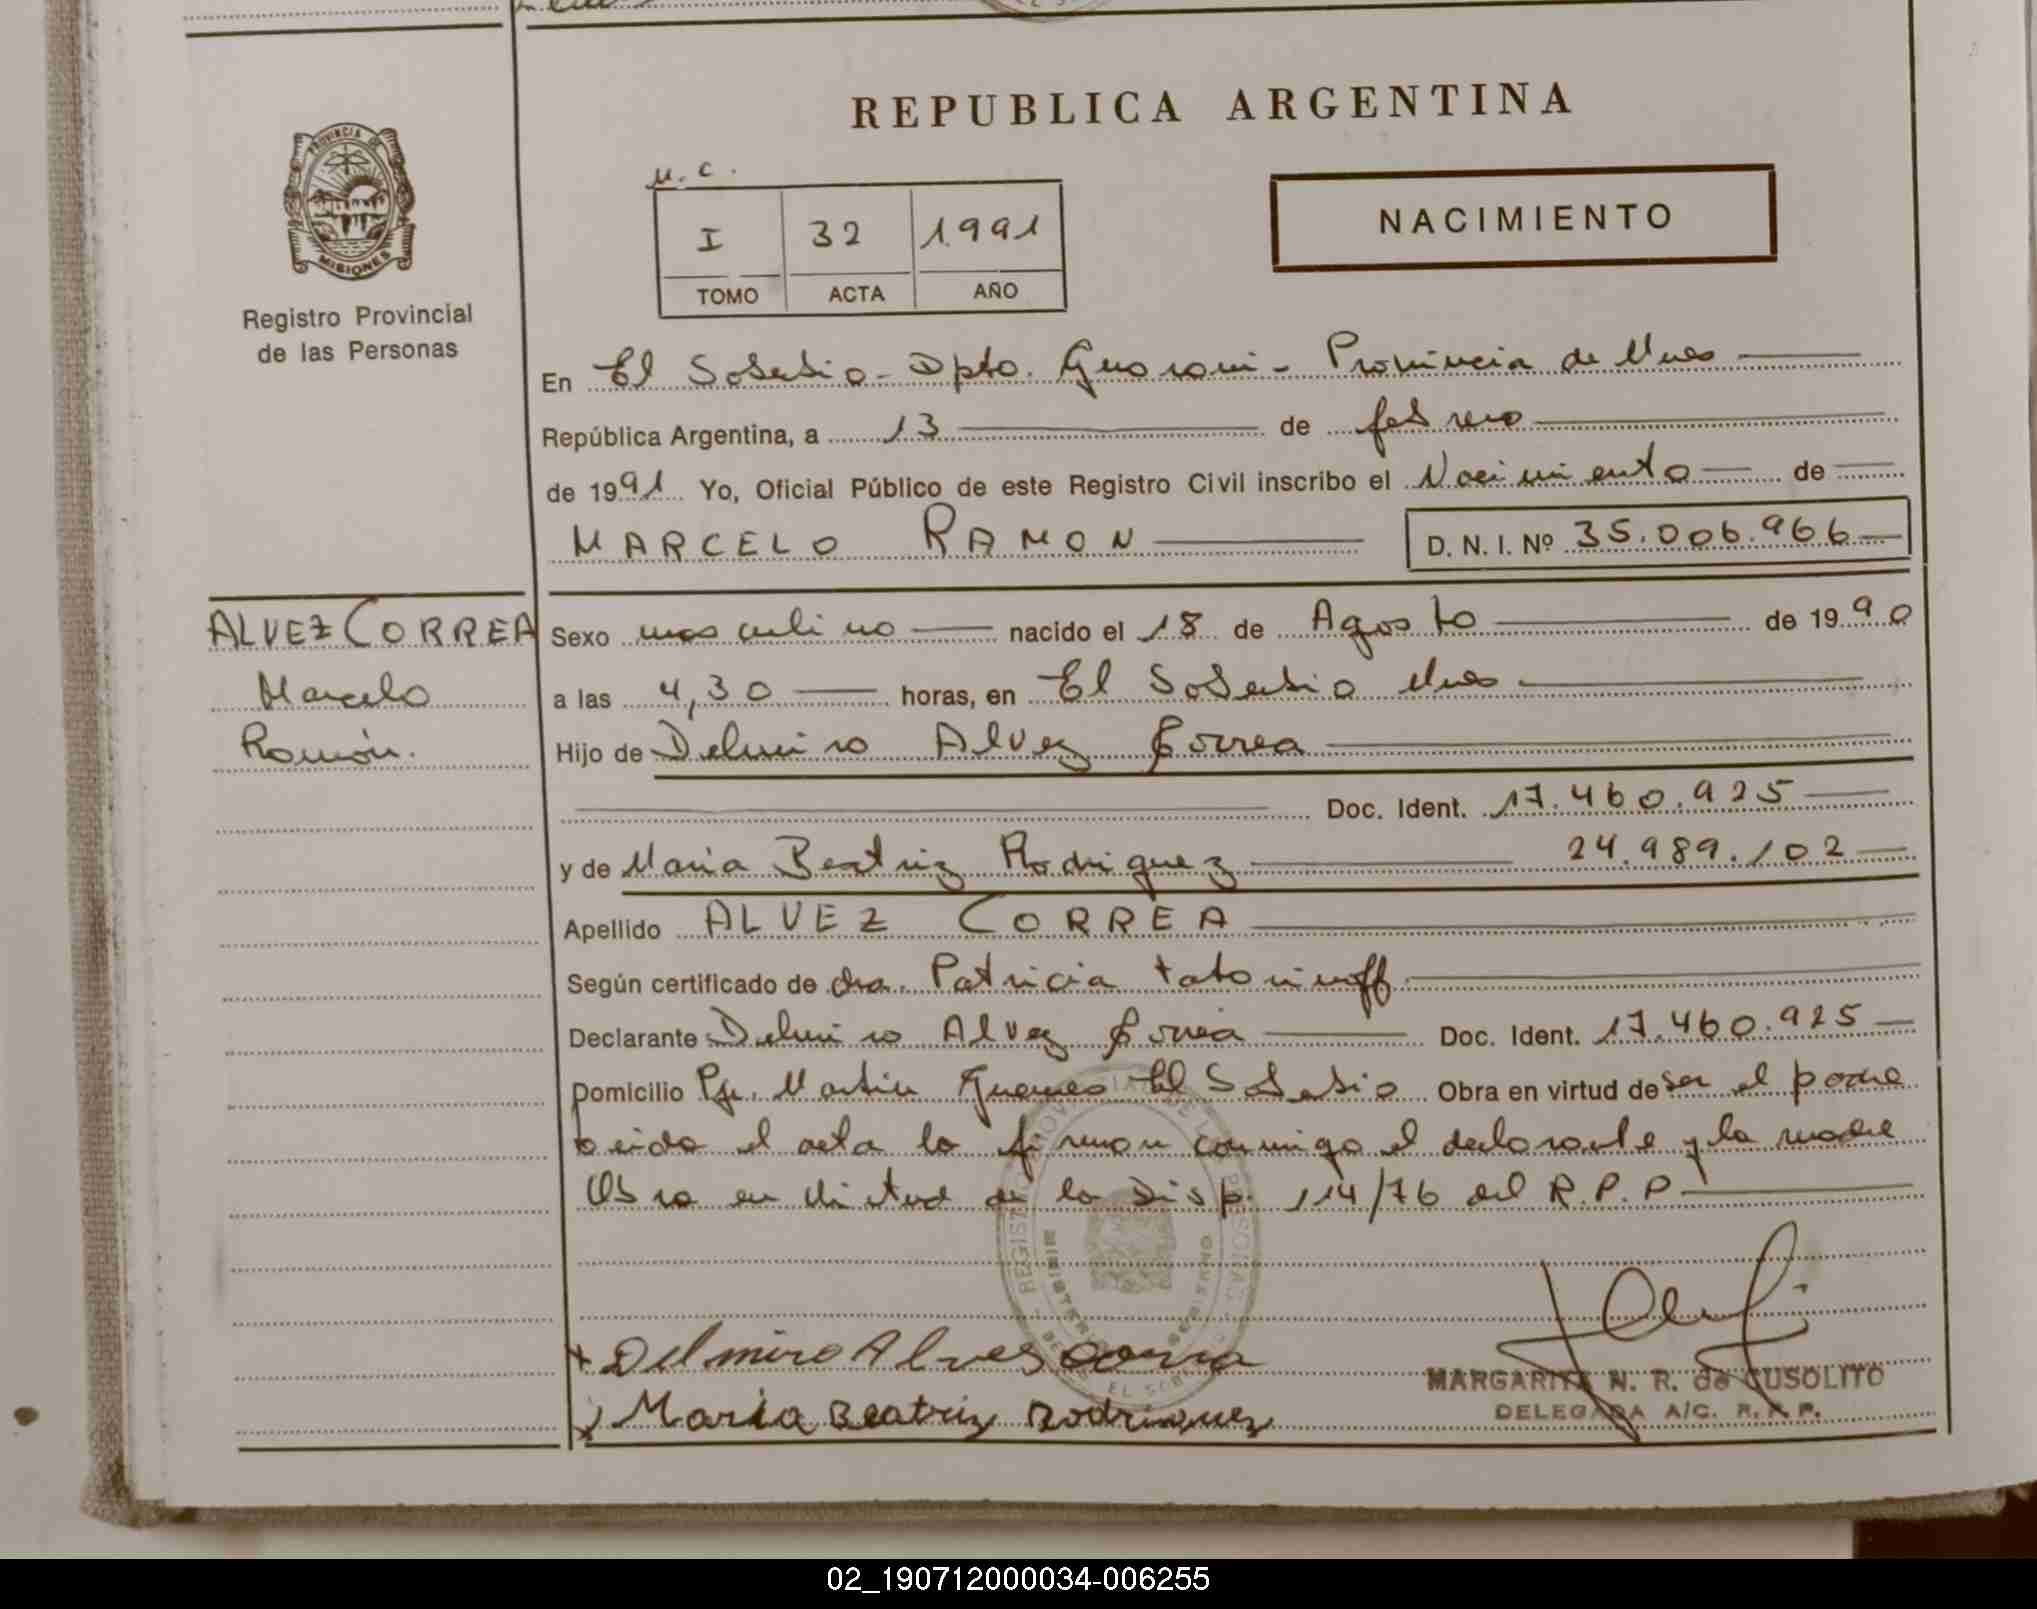 REPUBLICA ARGENTINA
PROVINCIA DE
MISIONES
Registro Provincial
de las Personas
u.c.
I 32 1991
TOMO ACTA AÑO
NACIMIENTO
En El Soberbio - Dpto. Guarani - Provincia de Mnes
República Argentina, a 13 de febrero
de 1991 Yo, Oficial Público de este Registro Civil inscribo el Nacimiento de
MARCELO RAMON D. N. I. Nº 35.006.966
ALVEZ CORREA
Marcelo
Ramón.
Sexo masculino nacido el 18 de Agosto de 1990
a las 4,30 horas, en El Soberbio Mnes
Hijo de Delmiro Alvez Correa
Doc. Ident. 17.460.925
y de Maria Beatriz Rodriguez 24.989.102
Apellido ALVEZ CORREA
Según certificado de dra. Patricia
Declarante Delmiro Alvez Correa Doc. Ident. 17.460.925
Domicilio Pje. Martin Guemes El Soberbio Obra en virtud de ser el padre
Leida el acta la firman conmigo el declarante y la madre
Obra en virtud de la Disp. 114/76 del R.P.P
Delmiro Alves correa
Maria Beatriz Rodriguez
MARGARITA N. R. de CUSOLITO
DELEGADA A/C. R.P.P.
02_190712000034-006255